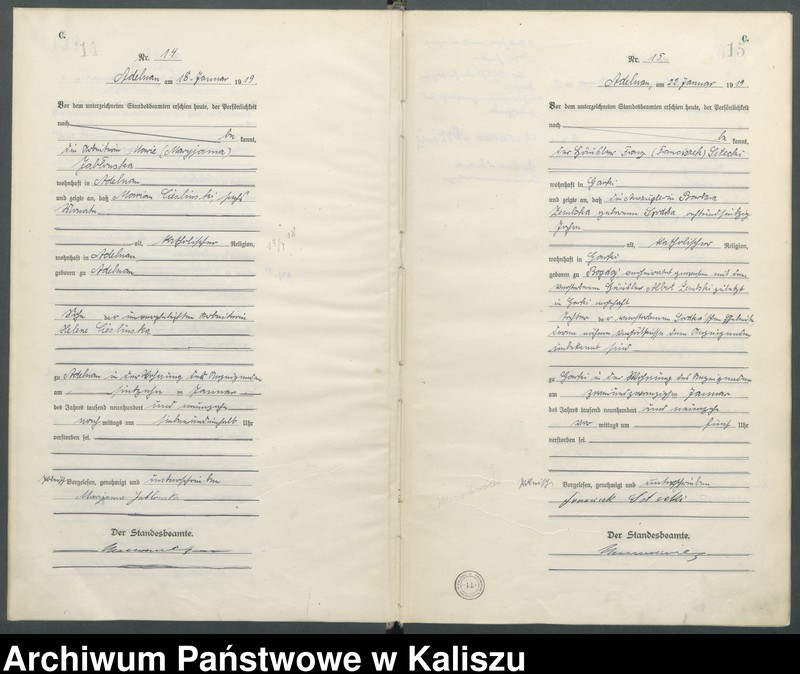 C.
14
Nr. 14
Adelnau am 18. Januar 1919.
Vor dem unterzeichneten Standesbeamten erschien heute, der Persönlichkeit
nach
be kannt,
die Arbeiterin Marie (Maryjanna)
Jabłonska
wohnhaft in Adelnau
und zeigte an, daß Marian Cieslinski, sechs
Monate
alt, katholischer Religion,
wohnhaft in Adelnau
geboren zu Adelnau
Sohn der unverehelichten Arbeiterin
Helene Cieslinska
zu Adelnau in der Wohnung des Anzeigenden
am siebzehn Januar
des Jahres tausend neunhundert und neunzehn
nach mittags um Uhr
verstorben sei.
Vorgelesen, genehmigt und unterschrieben
Maryjanna Jablonska
Der Standesbeamte.
C.
15
Nr. 15
Adelnau, am 22. Januar 1919.
Vor dem unterzeichneten Standesbeamten erschien heute, der Persönlichkeit
nach
be kannt,
der Häusler Franz (Franciszek)
wohnhaft in Garki
und zeigte an, daß die Auszüglerin Barbara
geborene achtundsiebzig
Jahre
alt, katholischer Religion,
wohnhaft in Garki
geboren zu verheiratet gewesen mit dem
verstorbenen Häusler Albert zuletzt
in Garki wohnhaft
Tochter der verstorbenen Eheleute
deren nähere Verhältnisse dem Anzeigenden
unbekannt sind
zu Garki in der Wohnung des Anzeigenden
am zweiundzwanzigsten Januar
des Jahres tausend neunhundert und neunzehn
vor mittags um fünf Uhr
verstorben sei.
Vorgelesen, genehmigt und unterschrieben
Der Standesbeamte.
Archiwum Państwowe w Kaliszu